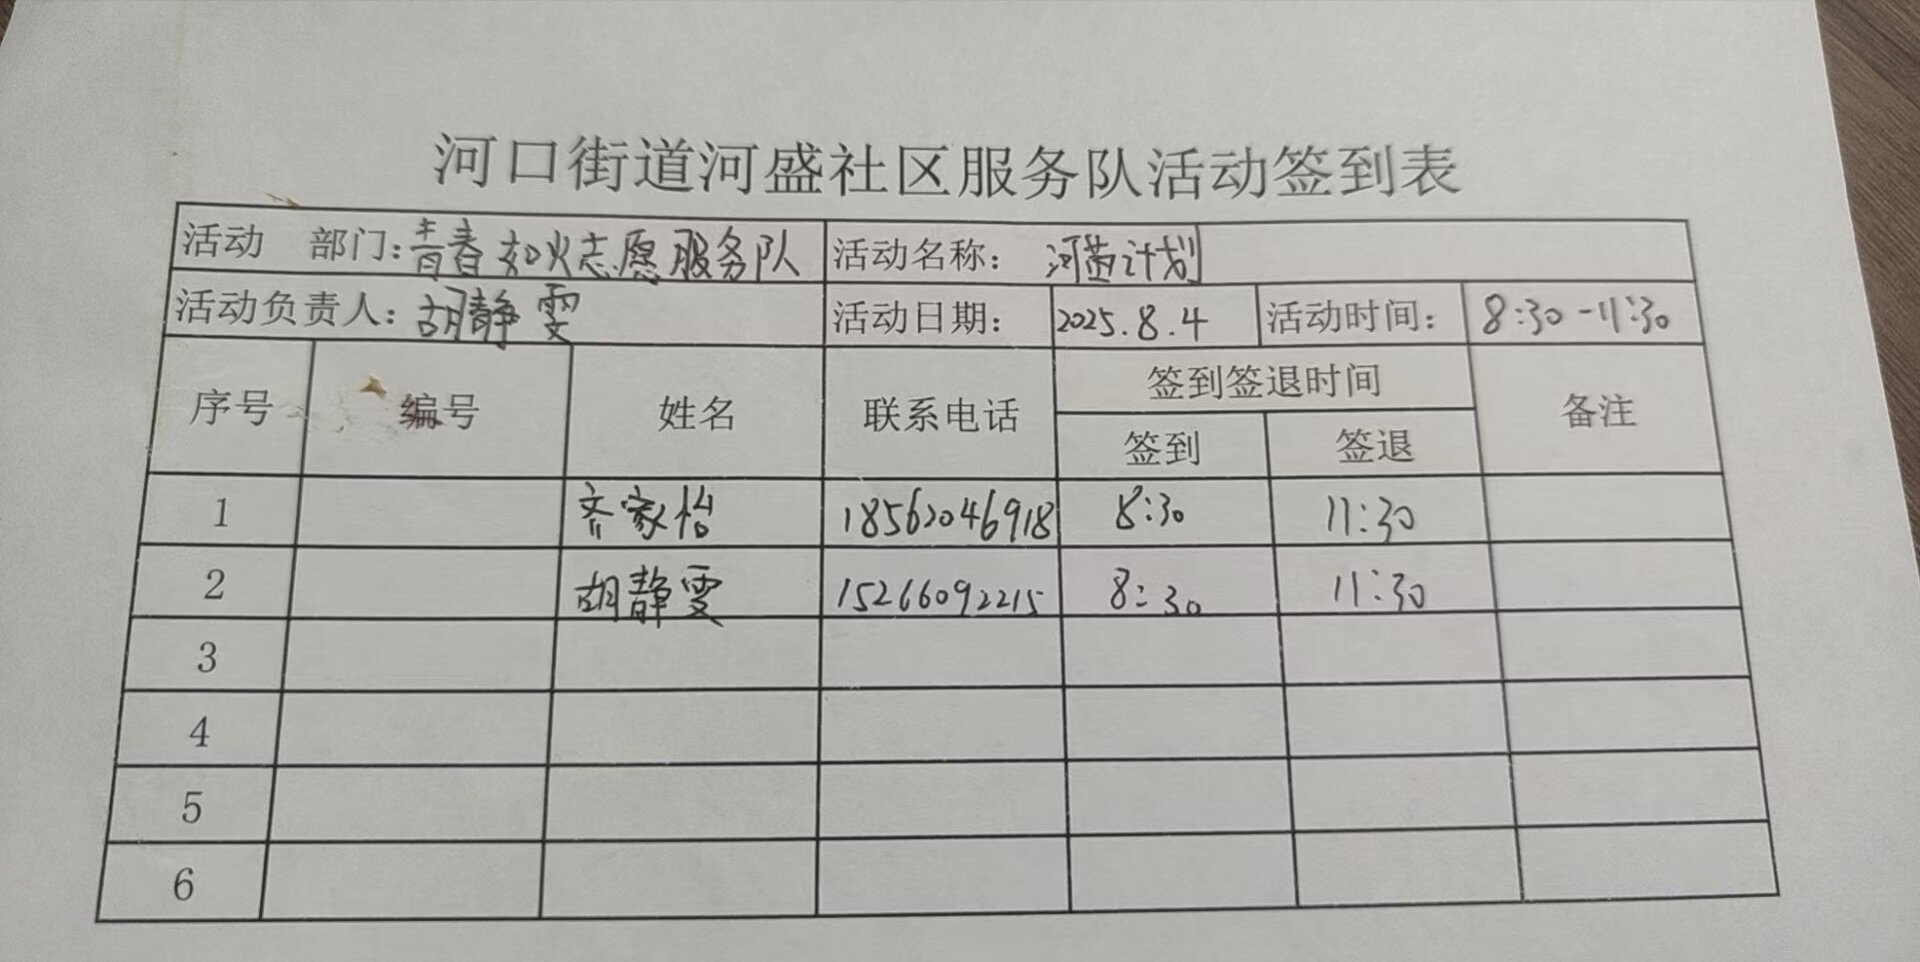 河口街道河盛社区服务队活动签到表
活动 部门：青春如火志愿服务队 活动名称： 河苗计划
活动负责人：胡静雯 活动日期： 2025.8.4 活动时间： 8:30-11:30
序号 编号 姓名 联系电话 签到签退时间 备注
签到 签退
1 齐家怡 18562046918 8:30 11:30
2 胡静雯 15266092215 8:30 11:30
3
4
5
6